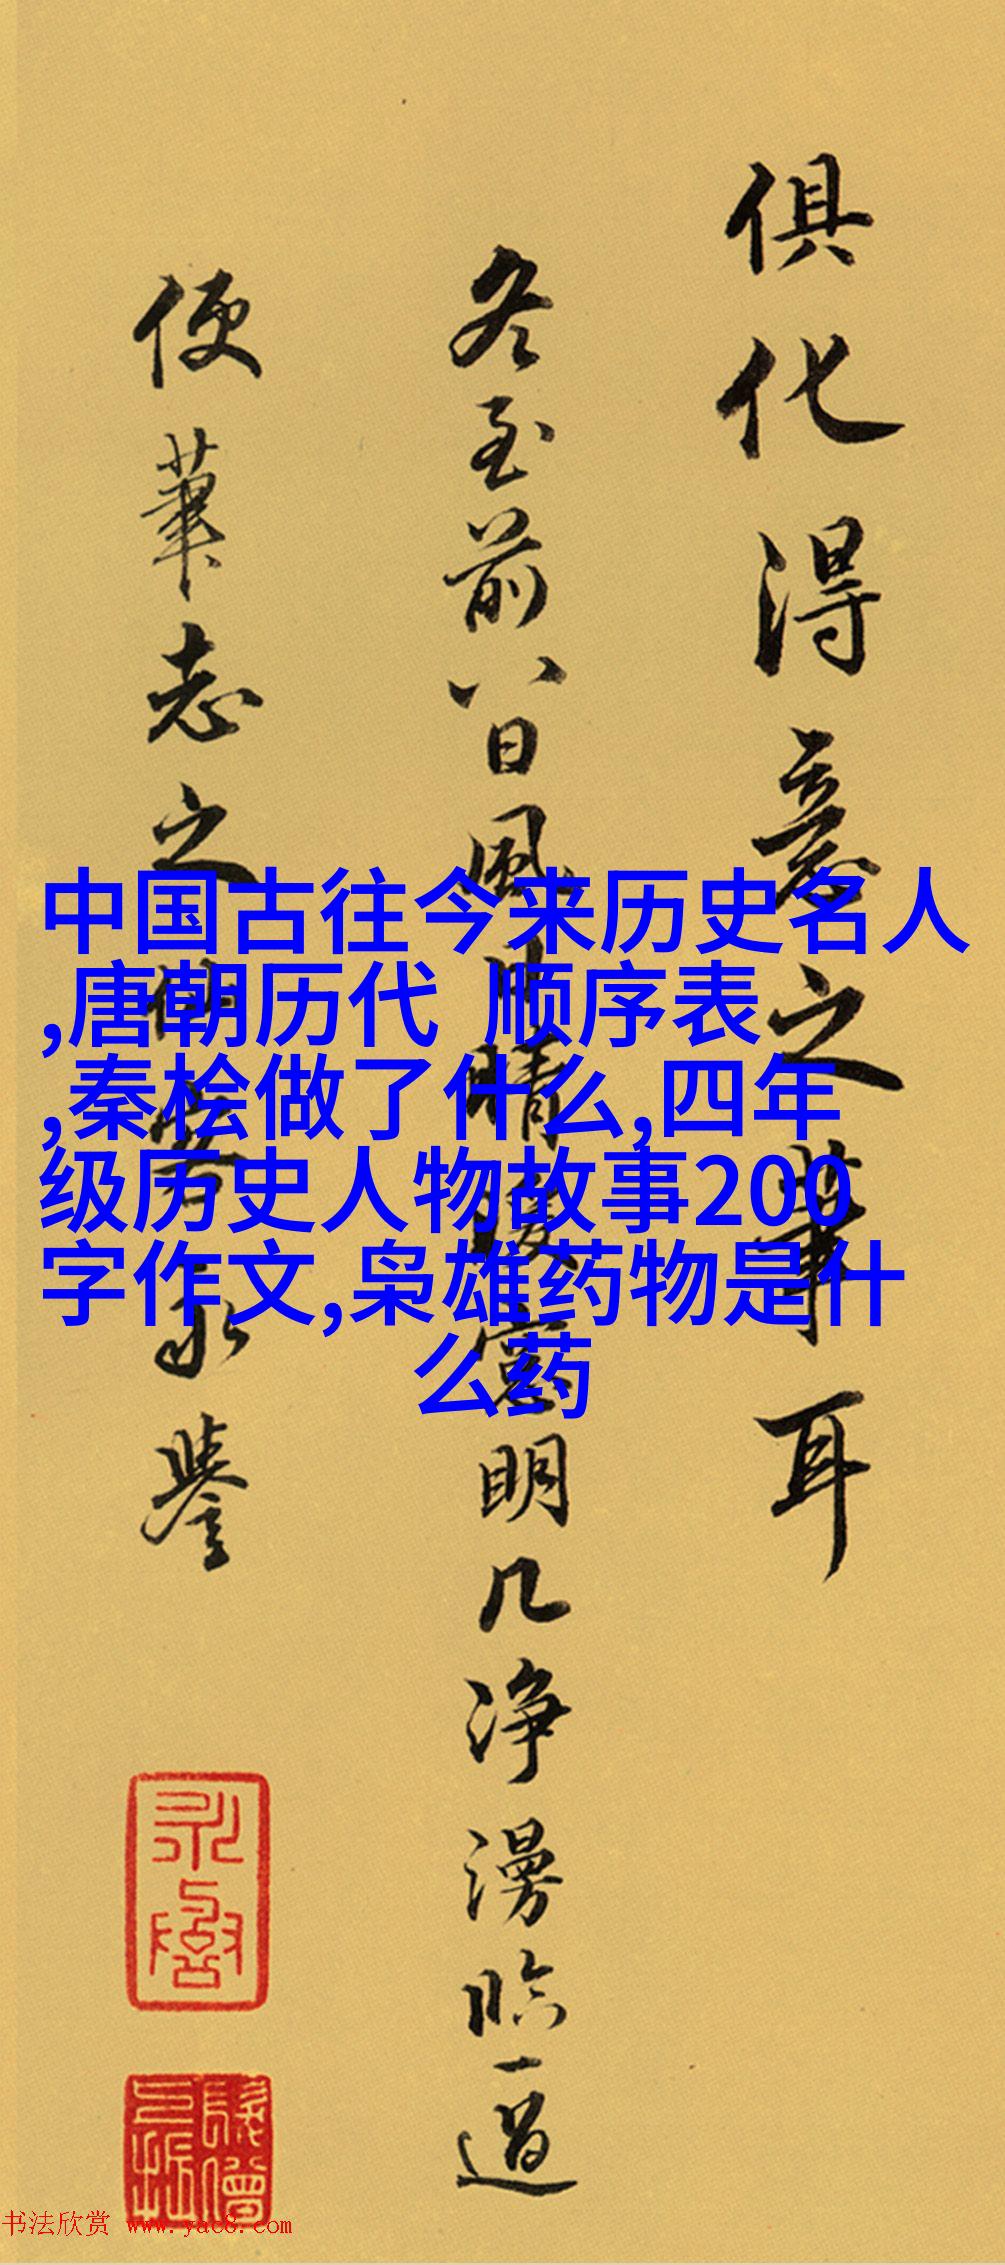 俱化得意之筆耳
冬至前八日風日晴暖窓明几浄漫臨一過
便筆志之
永譽
中国古往今来历史名人
,唐朝历代 顺序表
,秦桧做了什么,四年
级历史人物故事200
字作文,枭雄药物是什
么药
书法欣赏 www.yac8.com